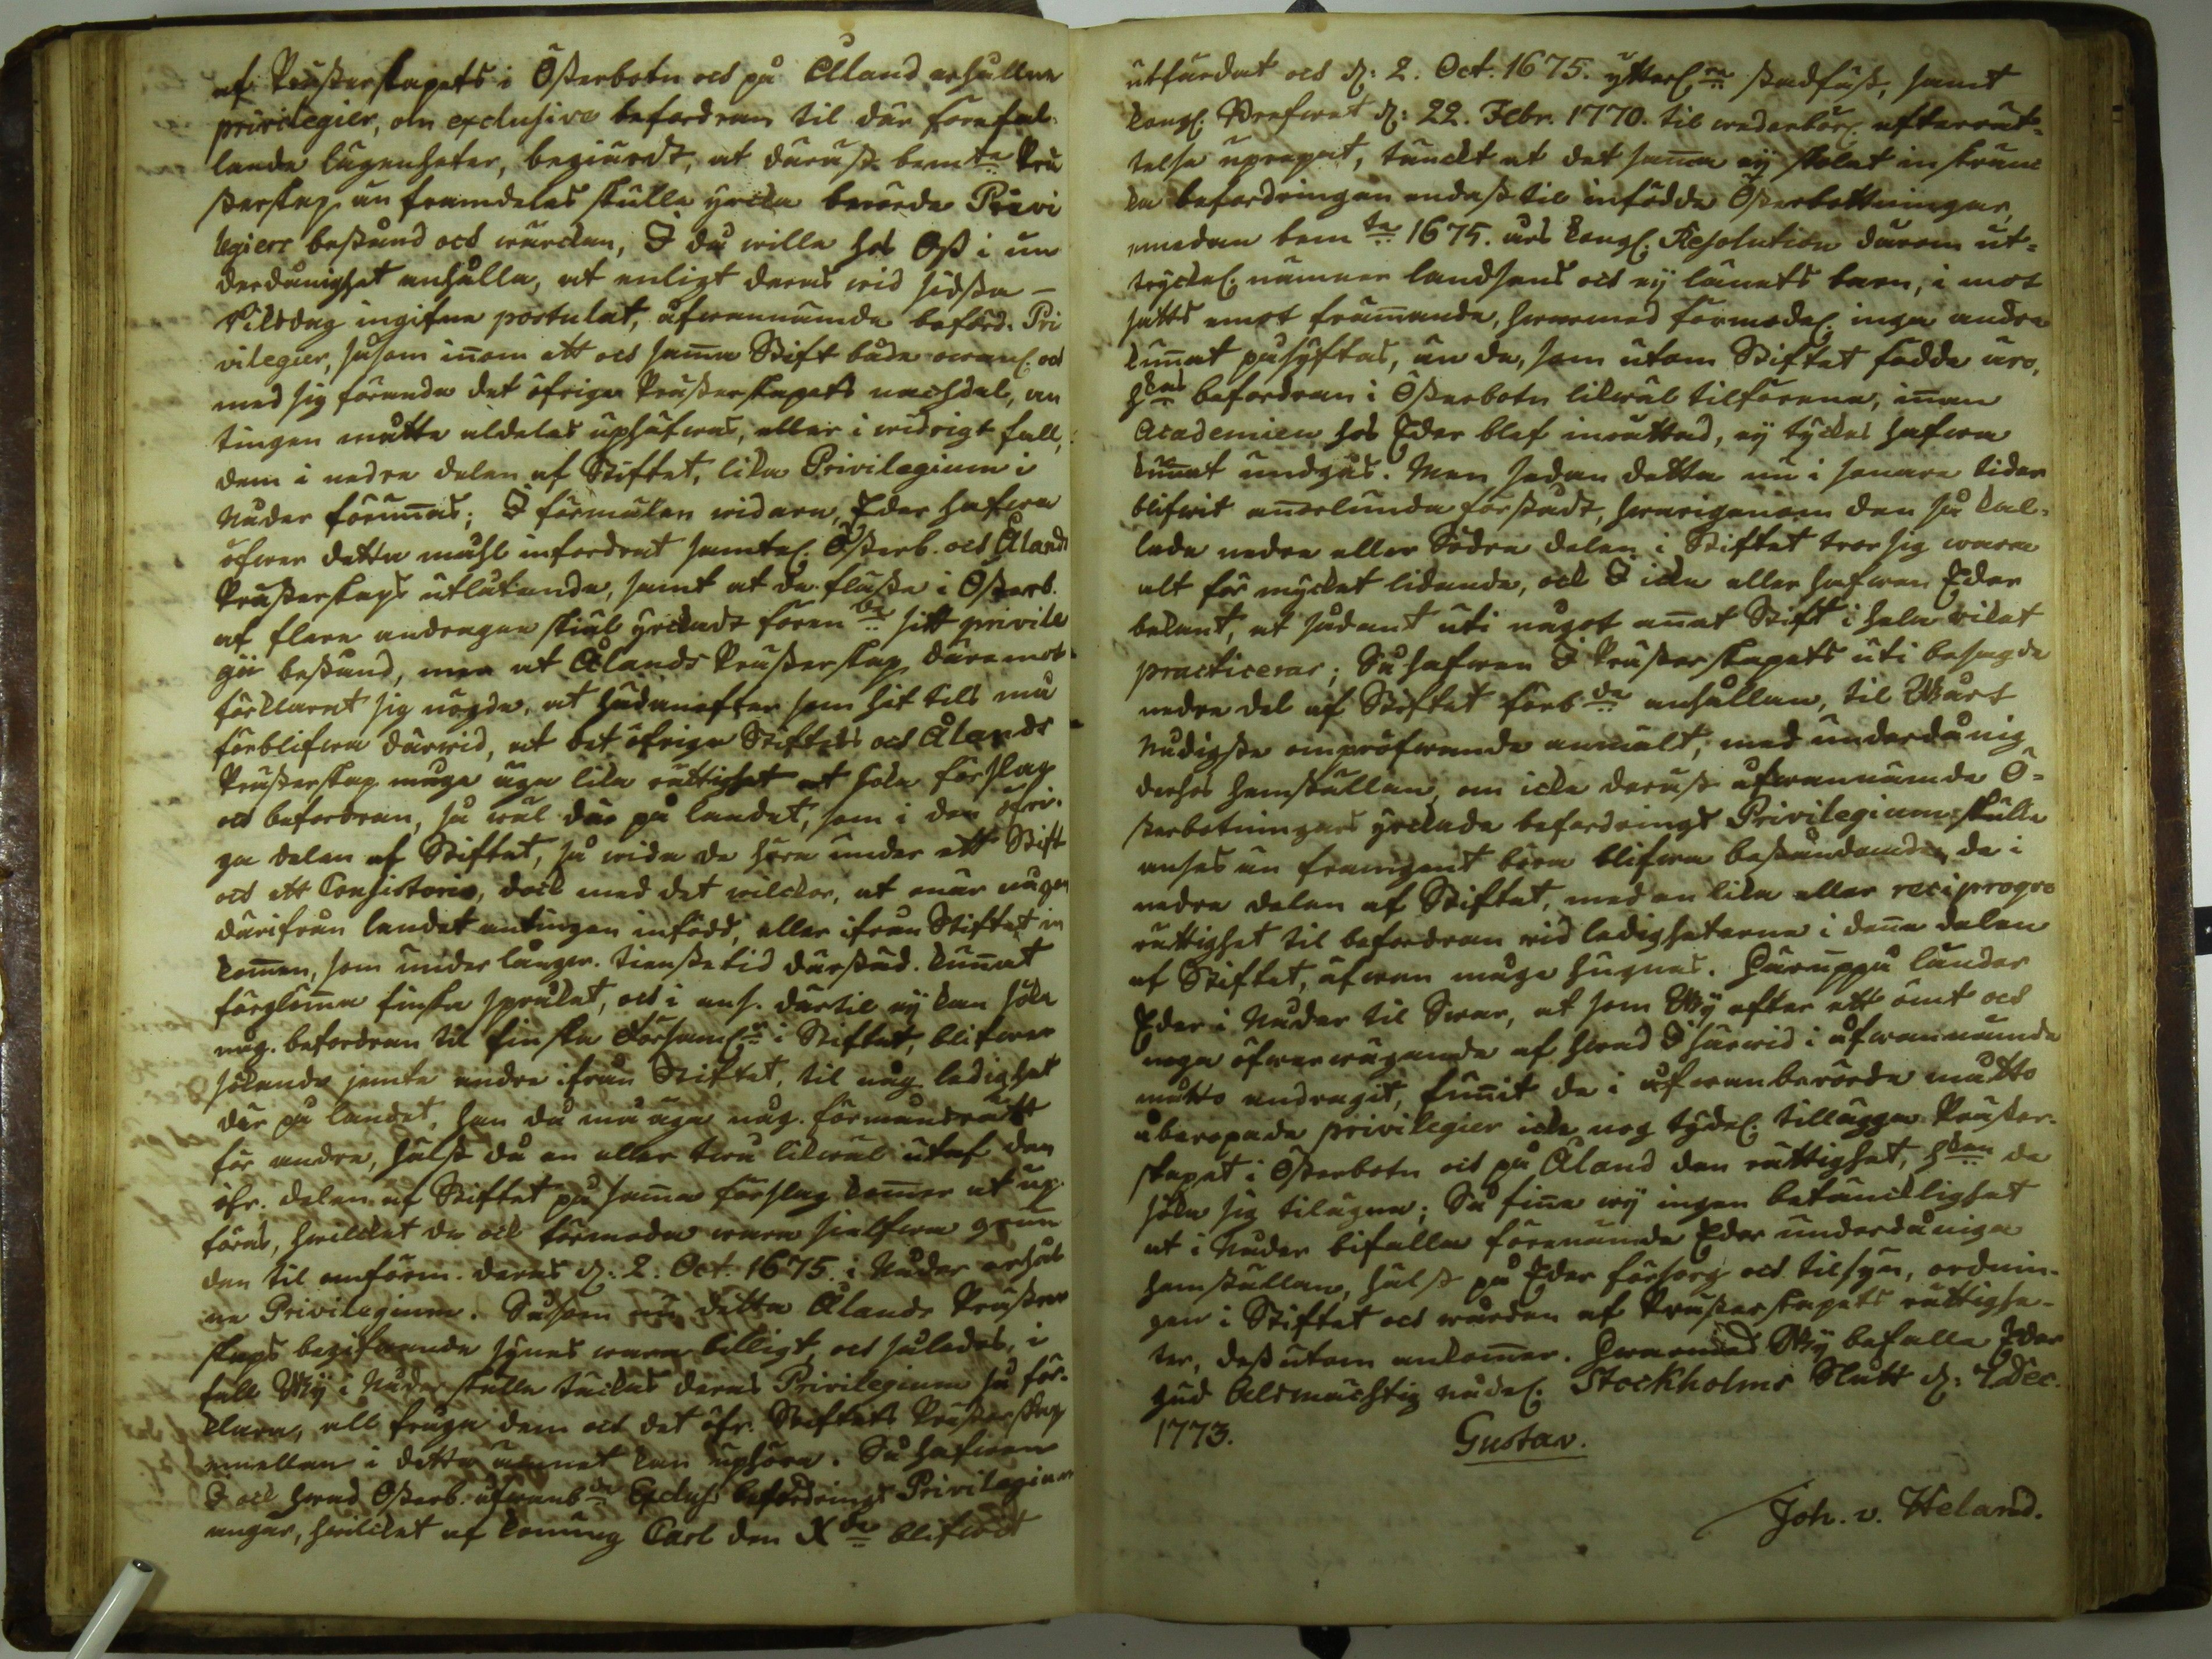 af Prästerskapets i Österbotn och på Åland erhållne
privilegier, om exclusive befordran til där förefal-
lande lägenheter, begiärdt, at därest bem:te Prä
sterskap än framdeles skulle yrcka berörde Privi
legiers bestånd och wärckan, I då wille hos Oss i un
derdånighet anhålla, at enligt deras wid sidsta –
Riksdag ingifne postulat, åfwannämde beförd. Pri
vilegier, såsom innom ett och samma Stift både owanl. och
med sig förande det öfriga Prästerskapets nachdel, an
tingen måtte aldeles uphäfwas, eller i widrigt fall,
dem i nedre delen af Stiftet, lika Privilegium i
Nåder förunnas; I förmälen widare, Eder hafwa
öfwer detta måhl infordrat samtel. Österb. och Ålands
Prästerskaps utlåtande, samt at de fläste i Österb.
af flere andragne skiäl yrckadt foren:de sitt privile
gii bestånd, men at Ålands Prästerskap däremot
förklarat sig nögde, at hädanefter som hit tils må
förblifwa därwid, at det öfriga Stiftets och Ålands
Prästerskap måge äga lika rättighet at söka förslag
och befordran, så wäl där på landet, som i den öfri-
ga delen af Stiftet, så wida de höra under ett Stift
och ett Consistorio, dock med det wilckor, at enär någon
därifrån landet antingen infödd, eller ifrån Stiftet in
kommen, som under långw. tienstetid därstäd. kunnat
förglömma finska språket, och i ans. därtil ej kan söka
någ. befordran til finska Församl:r i Stiftet, blifwer
sökande jemte andre ifrån Stiftet, til någ. ledighet
där på landet, han då må äga någ. förmånsrätt
för andra, hälst då en eller twå likwäl utaf den
öfr. delen af Stiftet på samma förslag kommer at up-
föras, hwilcket de ock förmoda wara sielfwa grun
den til omförm. deras d: 2. Oct. 1675. i Nåder erhåll
ne Privilegium. Såsom nu detta Ålands Präster
skaps begifwande synes wara billigt, och således, i
fall Wy i Nåder skulle täckas deras Privilegium så för-
klara, all fråga dem och det öfr. Stiftets Prästerskap
emellan i detta ämnet kan uphöra. Så hafwen
I ock hwad Österb. åfwanb:de Exclus. befordrings Privilegium
angår, hwilcket af Konung Carl den X:de blifwit
utfärdat och d: 2. Oct. 1675. ytterl:re stadfäst, samt
Kongl. Brefwet d: 22. Febr. 1770. til wederbör. efterrät-
telse uprepat, tänckt at det samma ej skolat inskränc
ka befordringen endast til infödde Österbottningar,
emedan bem:te 1675. års Kongl. Resolution därom ut-
tryckel. nämner landsens och ej länets barn, i mot
satts emot främmande, hwarmed förmodel. inga andra
kunnat påsyftas, än de, som utom Stiftet födde äro,
h:as befordran i Österbotn likwäl tilförene, innan
Academien hos Eder blef inrättad, ej tyckes hafwa
kunnat undgås. Men sedan detta nu i senare tider
blifwit annorlunda förstådt, hwarigenom den så kal-
lade nedre eller Södra delen i Stiftet tror sig wara
alt för mycket lidande, ock I icke eller hafwen Eder
bekant, at sådant uti något annat Stift i hela riket
practiceras; Så hafwen I Prästerskapets uti besagde
nedre del af Stiftet förb:de anhållan, til Wårt
Nådigste ompröfwande anmält, med underdånig
derhos hemställan, om icke derest åfwannämde Ö-
sterbotningars yrckade befordrings Privilegium skulle
anses än framgent böra blifwa beståndande, de i
nedre delen af Stiftet, med en lika eller reciproque
rättighet til befordran wid ledigheterne i denne delen
af Stiftet, äfwen måge hugnas. Häruppå länder
Eder i Nåder til Swar, at som Wy efter ett ömt och
noga öfwerwägande af hwad I härwid i åfwannämde
måtto andragit, funnit de i åfwanberörde måtto
åberopade privilegier icke nog tydel. tillägga Präster-
skapet i Österbotn och på Åland den rättighet, h:en de
söka sig tilägna; Så finne wy ingen betäncklighet
at i Nåder bifalla förenämde Eder underdåniga
hemställan, hälst på Eder försorg och tilsyn, ordnin-
gen i Stiftet och wården af Prästerskapets rättighe-
ter, dessutom ankommer. Hwarmed Wy befalle Eder
Gud Alsmächtig nådel. Stockholms Slått d: 7 Dec.
1773. Gustav.
Joh. v. Heland.